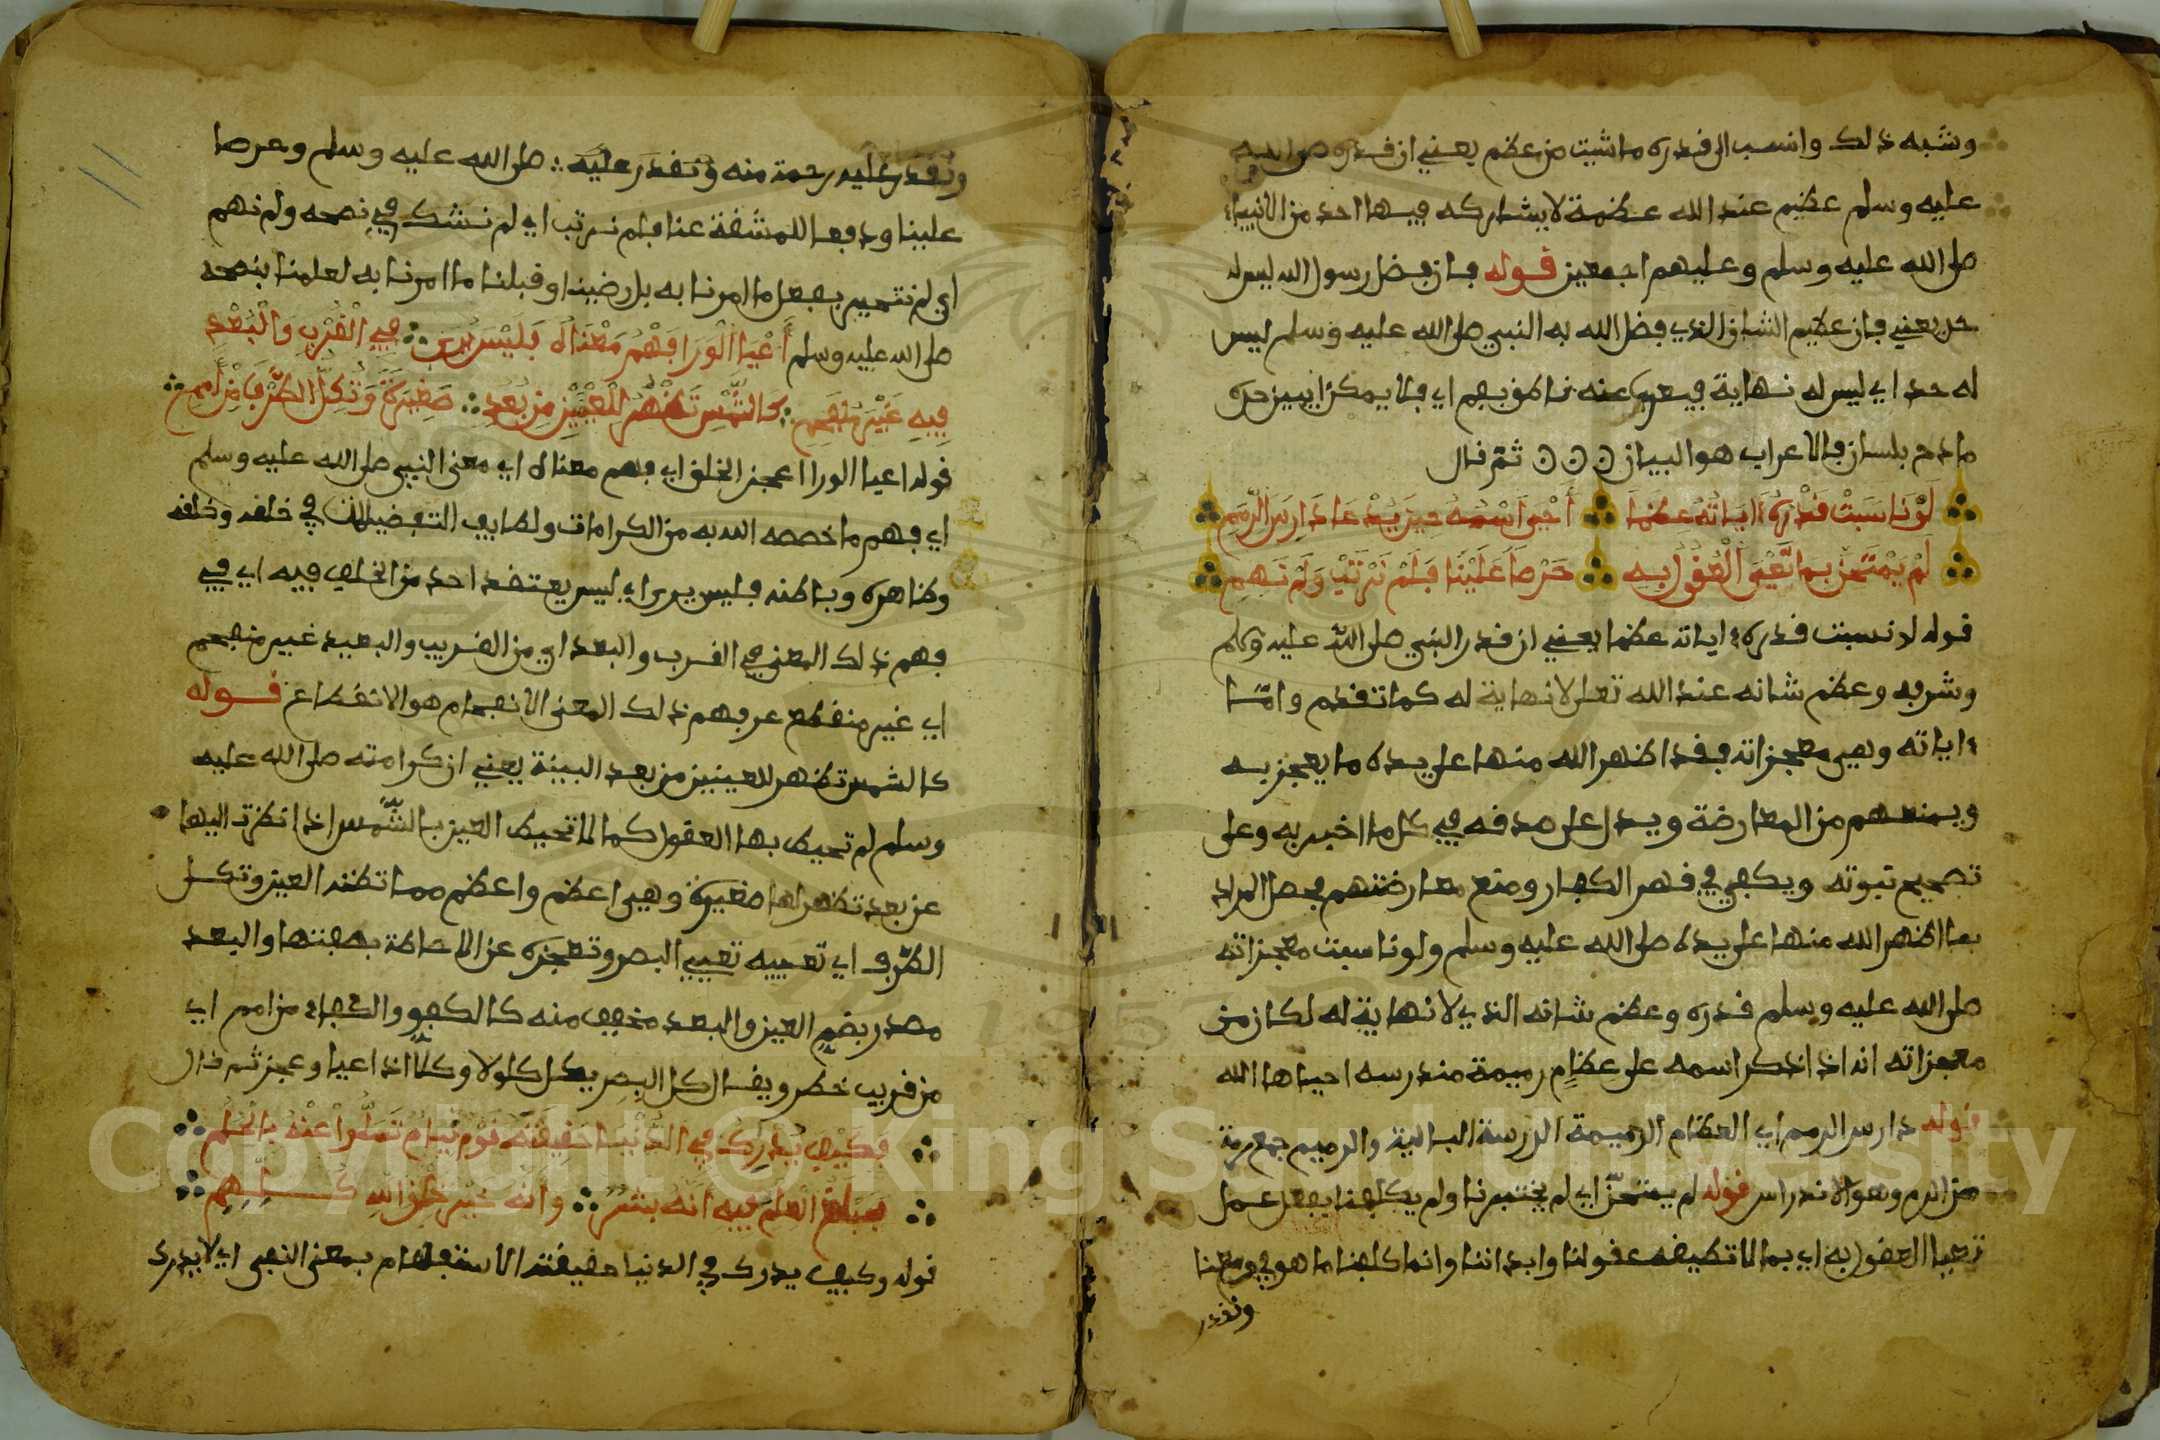 وشبه ذلك وانسب الى قدره ما شيت من عظم يعني ان قدره صلى الله
عليه وسلم عظيم عند الله عظمة لا يشاركه فيها احد من الانبياء
صلى الله عليه وسلم وعليهم اجمعين قوله فان فضل رسول الله ليس له
حد يعني فان عظيم الشان الذي فضل الله به النبي صلى الله عليه وسلم ليس
له حد اي ليس له نهاية فيعرب عنه ناطق بفم اي فلا يمكن ان يبين حده
مادح بلسان فالاعراب هو البيان ثم قال
لَوْ نَاسَبَتْ قَدْرَهُ ءايَاتُهُ عِظَمًا أَحْيَى اسْمُهُ حِينَ يُدْعَا دَارِسَ الرِّمَمِ
لَمْ يَمْتَحِنَّا بِمَا تَعْيَى الْعُقُولُ بِهِ حِرْصًا عَلَيْنَا فَلَمْ نَرْتَبْ وَلَمْ نَهِمِ
قوله لو نسبت قدره ءاياته عظما يعني ان قدر النبي صلى الله عليه وسلم
وشرفه وعظم شانه عند الله تعلى لا نهاية له كما تقدم وامّا
ءاياته وهي معجزاته فقد اظهر الله منها على يده ما يعجز به
ويمنعهم من المعارضة ويدل على صدقه في كل ما اخبر به وعلى
تصحيح نبوته ويكفي في قهر الكفار ومنع معارضتهم فحصل المراد
بما اظهر الله منها على يده صلى الله عليه وسلم ولو ناسبت معجزاته
صلى الله عليه وسلم قدره وعظم شانه الذي لا نهاية له لكان من
معجزاته انه اذا ذكر اسمه على عظام رميمة مندرسه احياها الله
قوله دارس الرمم اي العظام الرميمة الدرسة البالية والرميم جمع رمة
من الرم وهو الاندراس قوله لم يمتحنّا اي لم يختبرنا ولم يكلفنا بفعل عمل
تعيا العقول به اي بما لا تطيقه عقولنا وابداننا وانما كلفنا ما هو في وسعنا
ونقدر
ونقدر عليه رحمة منه ونقدر عليه صلى الله عليه وسلم وحرصا
علينا ودفعا للمشقة عنا فلم نرتب اي لم نشك في نصحه ولم نهم
اي لم نتحير بفعل ما امرنا به بل رضينا وقبلنا ما امرنا به لعلمنا بنصحه
صلى الله عليه وسلم أَعْيَا الْوَرَا فَهْمُ مَعْنَاهُ فَلَيْسَ يُرَى فِي الْقُرْبِ وَالْبُعْدِ
فِيهِ غَيْرُ مُنْفَحِمِ كَالشَّمْسِ تَظْهَرُ لِلْعَيْنَيْنِ مِن بُعُدٍ صَغِيرَةً وَتُكِلُّ الطَّرْفَ مِنْ أَمَمِ
قوله اعيا الورا اعجز الخلق اي فهم معناه اي معنى النبي صلى الله عليه وسلم
اي فهم ما خصصه الله به من الكرامات ولطايف التفضيلات في خلقه وخلقه
وظاهره وباطنه فليس يرى اي ليس يعتقد احد من الخلق فيه اي في
فهم ذلك المعنى في القرب والبعد اي من القريب والبعيد غير منفحم
اي غير منقطع عن فهم ذلك المعنى الانفحام هو الانقطاع قوله
كالشمس تظهر للعينين من بعد البيتة يعني ان كرامته صلى الله عليه
وسلم لم تحيط بها العقول كما لا تحيط العين بالشّمس اذا نظرت اليها
عن بعد تظهر لها صغيرة وهي اعظم واعظم مما تظنه العين وتكل
الطّرف اي تعييه تعيي البصر وتعجزه عن الاحاطة بهيئتها والبعد
مصدر بضم العين والبعد مخفف منه كالكفو والكفاء من امم اي
من قريب خطر ويقال كل البصر يكل كلولا وكلّا اذا عيا وعجز ثم قال
فَكَيْفَ يُدْرِكُ فِي الدُّنْيَا حَقِيقَتَهُ قَوْمٌ نِيَامٌ تَسَلَّوْا عَنْهُ بِالْحُلُمِ
فَمَبْلَغُ الْعِلْمِ فِيهِ أَنَّهُ بَشَرٌ وَأَنَّهُ خَيْرُ خَلْقِ اللَّهِ كُلِّهِمِ
قوله وكيف يدرك في الدنيا حقيقته الاستفهام بمعنى النفي اي لا يدرك
Copyright © King Saud University